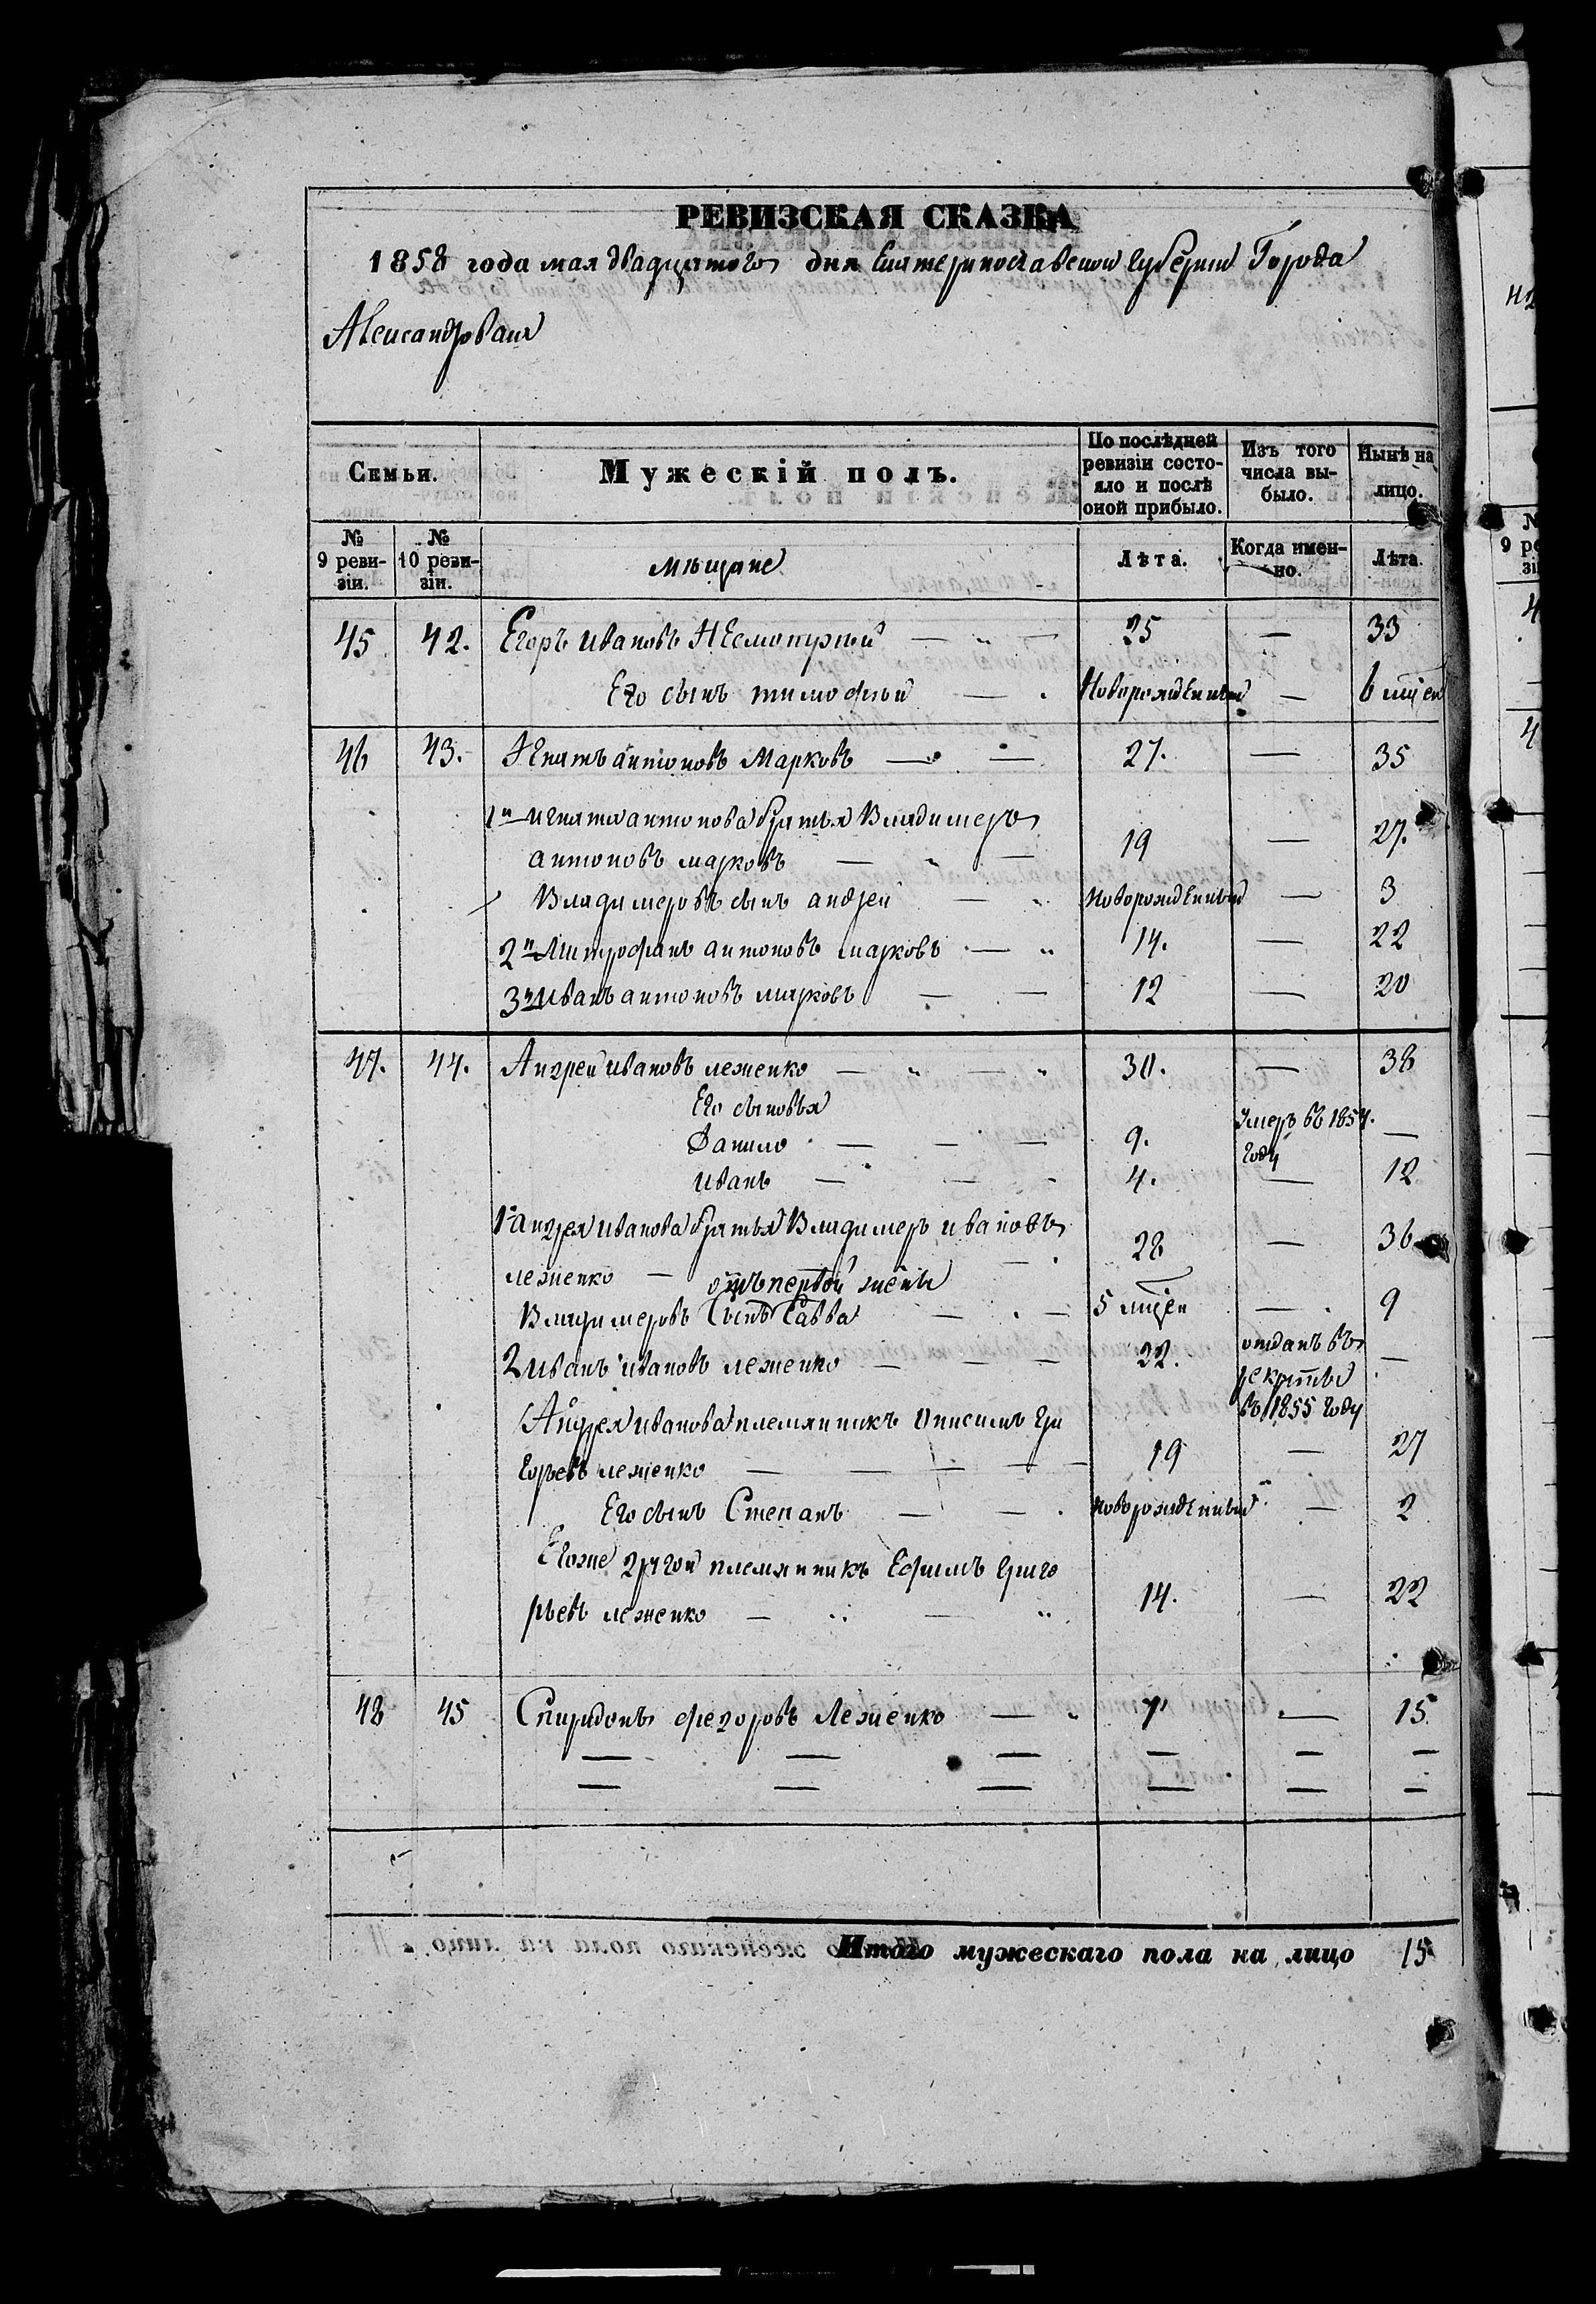 РЕВИЗСКАЯ СКАЗКА
1858 года мая двадцятого дня Екатеринославской губернии Города
Александровска
Семьи.
Мужескій полъ.
По послѣдней ревизіи состо-
яло и послѣ
оной прибыло.
Изъ того
числа вы-
было.
Нынѣ на
лицо.
№
9 реви-
зіи.
№
10 реви-
зіи.
мѣщане
Лѣта.
Когда имен-
но.
Лѣта.
45 42. Егоръ Ивановъ 25 — 33
Его сынъ тимофѣй — Новорожденный — 6 мцей
46 43. Игнатъ антоновъ Марковъ — — 27. — 35
1й игната антонова братья Владимеръ
антоновъ марковъ — — 19 — 27.
Владимеровъ сынъ андрей — новорожденный — 3
2й Митрофанъ антоновъ марковъ — 14. — 22
3й Иванъ антоновъ марковъ — — 12 — 20
47. 44. Андрей ивановъ леженко — — 30. — 38
Его сыновья
Данило — — — 9. Умеръ въ 1854. году —
иванъ — — 4. — 12
1й андрея иванова братья Владимеръ ивановъ
леженко — — 28 — 36
отъ первой жены
Владимеровъ Сынъ Савва — — 5 мцей — 9
2 иванъ ивановъ леженко — — — 22. отданъ въ
рекруты
въ 1855 году —
Андрея иванова племянникъ Онисимъ Гри
горьевъ леженко — — — — 19 — 27
Его сынъ Степанъ — — новорожденный — 2
Егоже другой племянникъ Ефимъ григо
рьевъ леженко — — 14. — 22
48 45 Спиридонъ федоровъ Леженко — 7 — 15.
— — — — — —
— — — — — —
Итого мужескаго пола на лицо 15
№
9 ре
зі